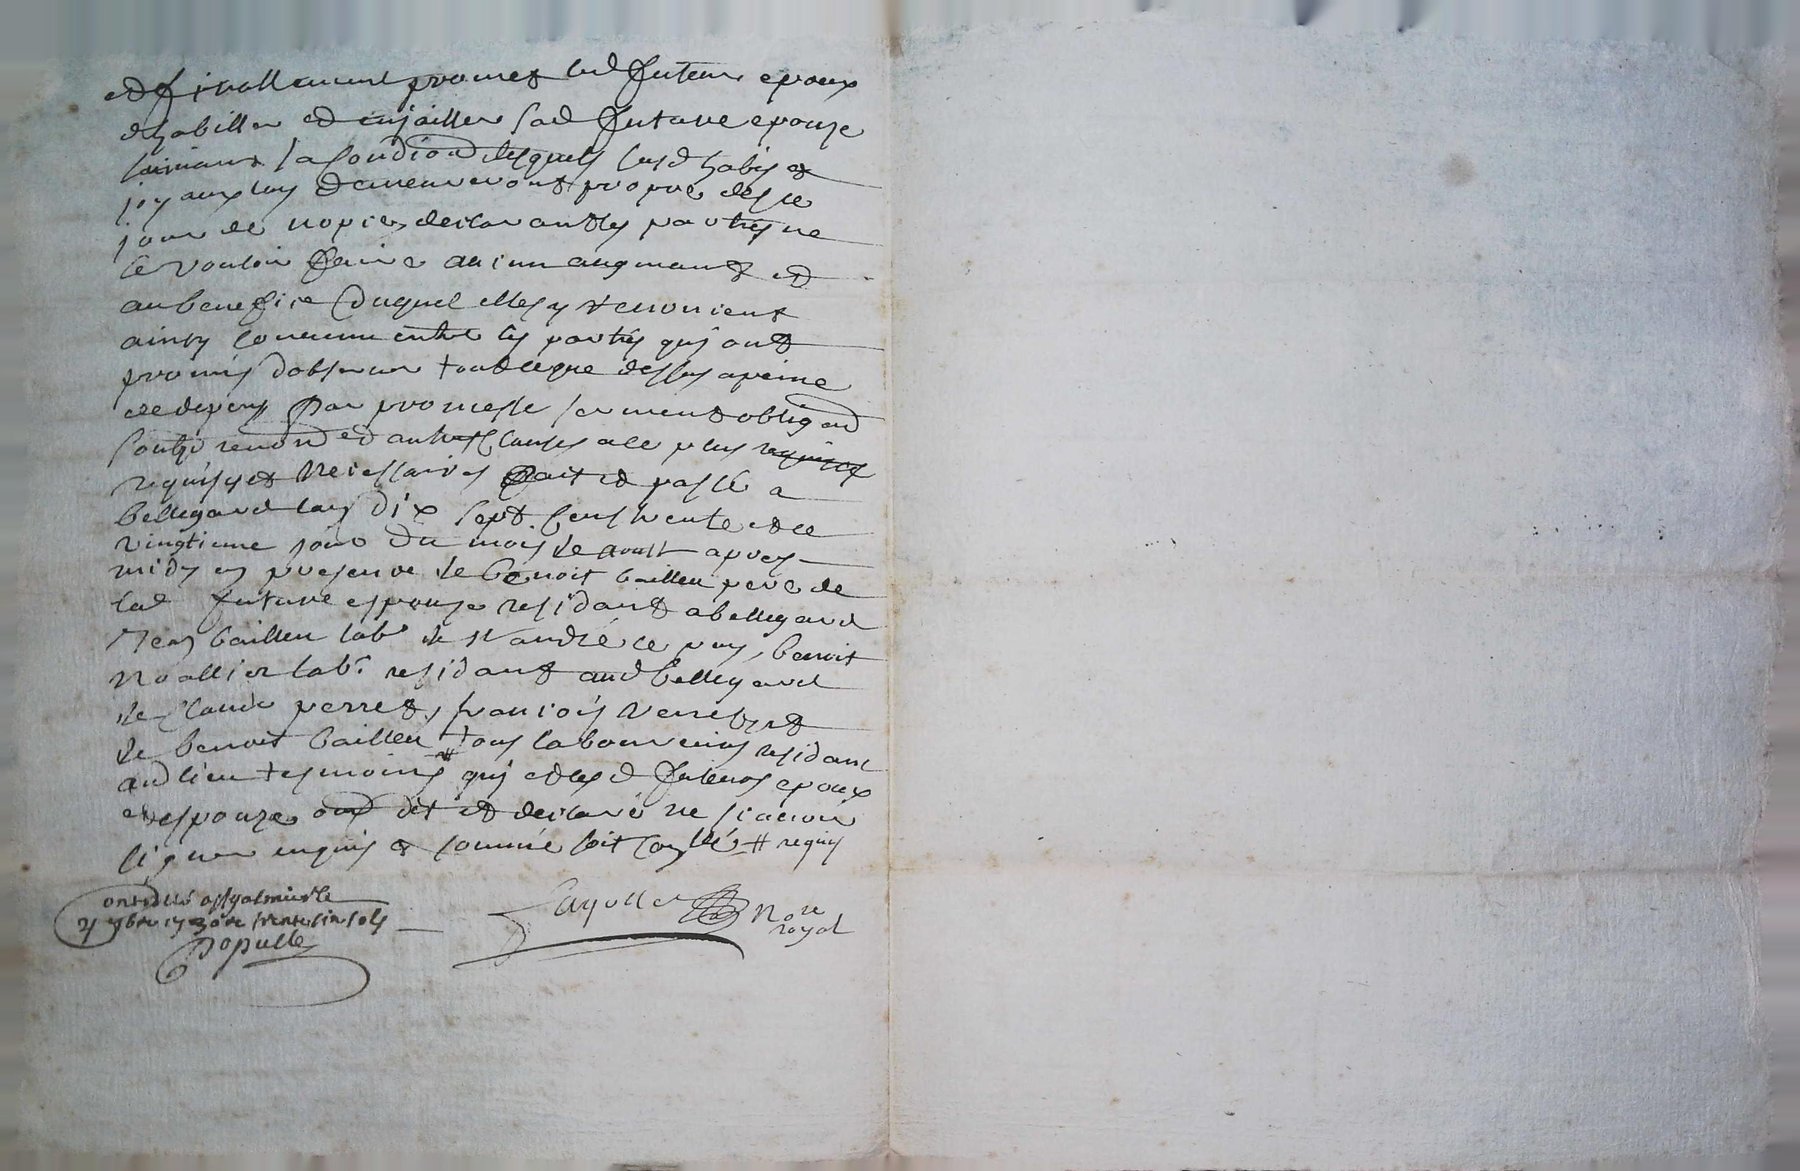 et finallement promet led futeur epoux
dhabiller et enjailler sad future epouze
suivant sa condion desquels lesd habis et
joyaux luy demeureront propre des le
jour de nopces declarant les parties ne
ce vouloir faire aucun augmant et
au benefice duquel elles y renonient
ainsy convenu entre les parties quy ont
promis dobserver tout ce que dessus a peine
de depens par promesse serment obligaon
soubz renon et autres clauses a ce plus
requises et necessaires fait et passé a
bellegard lan dix sept cens trente et le
vingtieme jour du mois de aoust apres
midy en presence de benoit baillieu pere de
lad future espouze residant a bellegard
Jean baillieu labr de st andré le puy, benoit
labr residant aud bellegard
de claude perret, francois et
de benoit baillieu tous laboureurs residant
aud lieu tesmoins # quy et lesd futeurs epoux
et espouze ont dit et declaré ne scavoir
signer enquis et sommé soit # requis
a st galmier le
trente cinq sols
Populle
Nore
royal